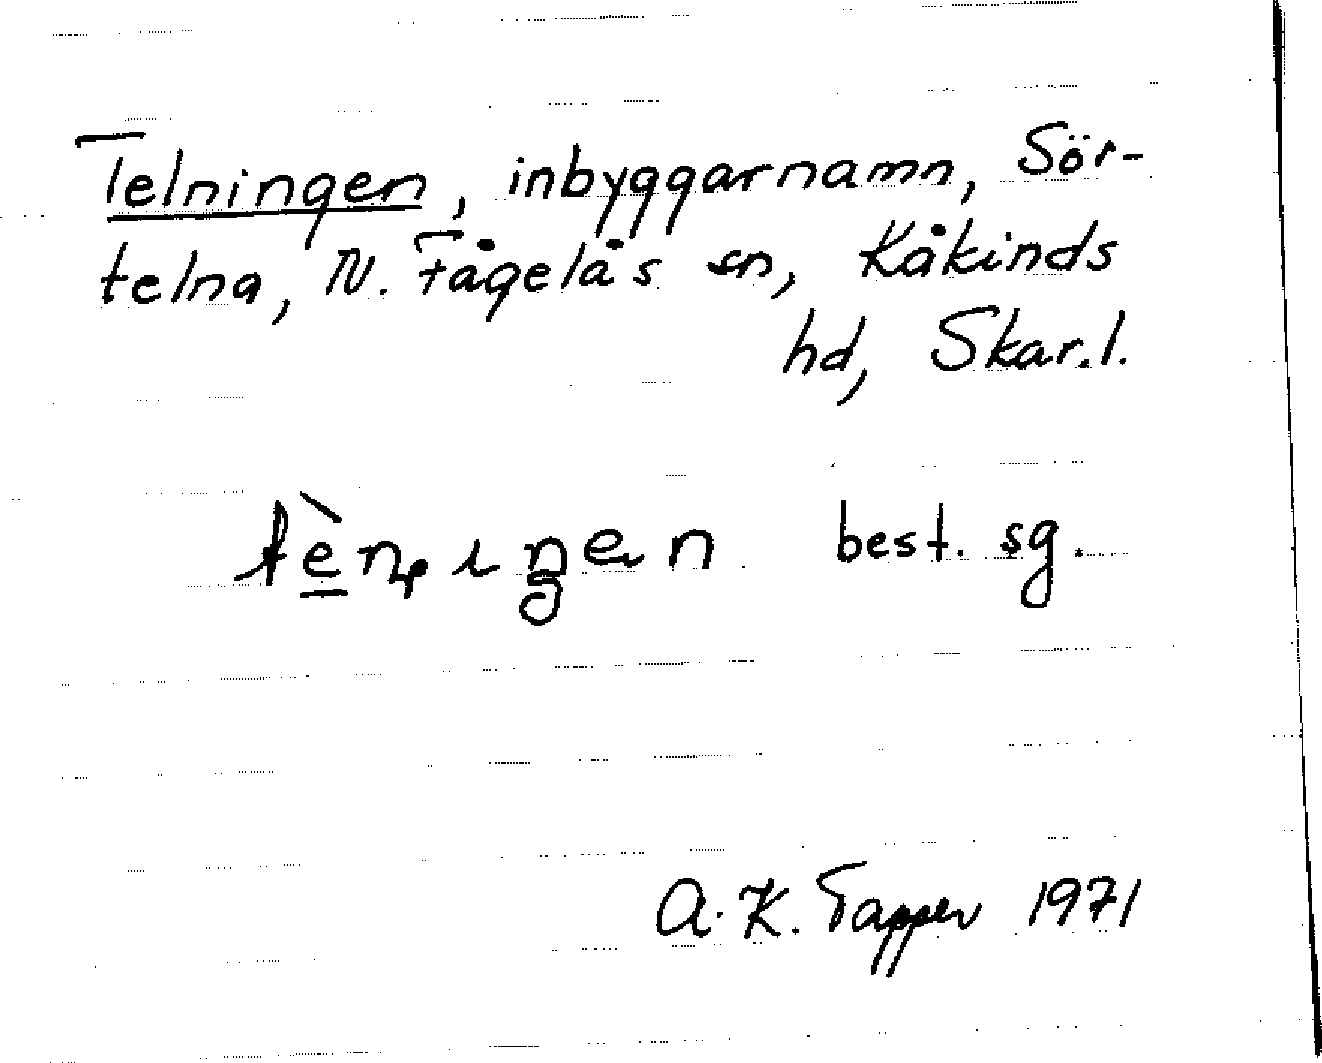 Telningen, inbyggarnamn, Sör-
telna, N. Fågelås sn, Kåkinds
hd, Skar.l.
best. sg.
A.K. Tapper 1971